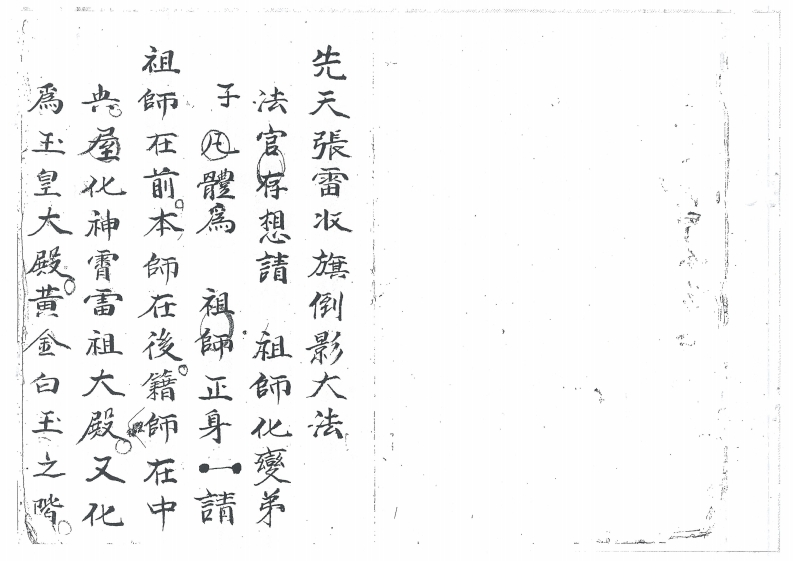 先天張雷收旗倒影大法
法官存想請 祖師化變弟
子凡體為 祖師正身一請
祖師在前本師在後籍師在中
典屋化神霄雷祖大殿又化
爲玉皇大殿黃金白玉之階